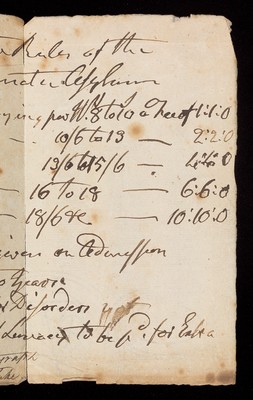 Rules of the
Asylum
paying per W. 8 to 10 a head 1:1:0
— 10/6 to 13 — 2:2:0
13/6 to 15/6 — 4:4:0
— 16 to 18 — 6:6:0
— 18/6 &c — 10:10:0
on Admission
Disorders not
to be pd. for Extra
graph